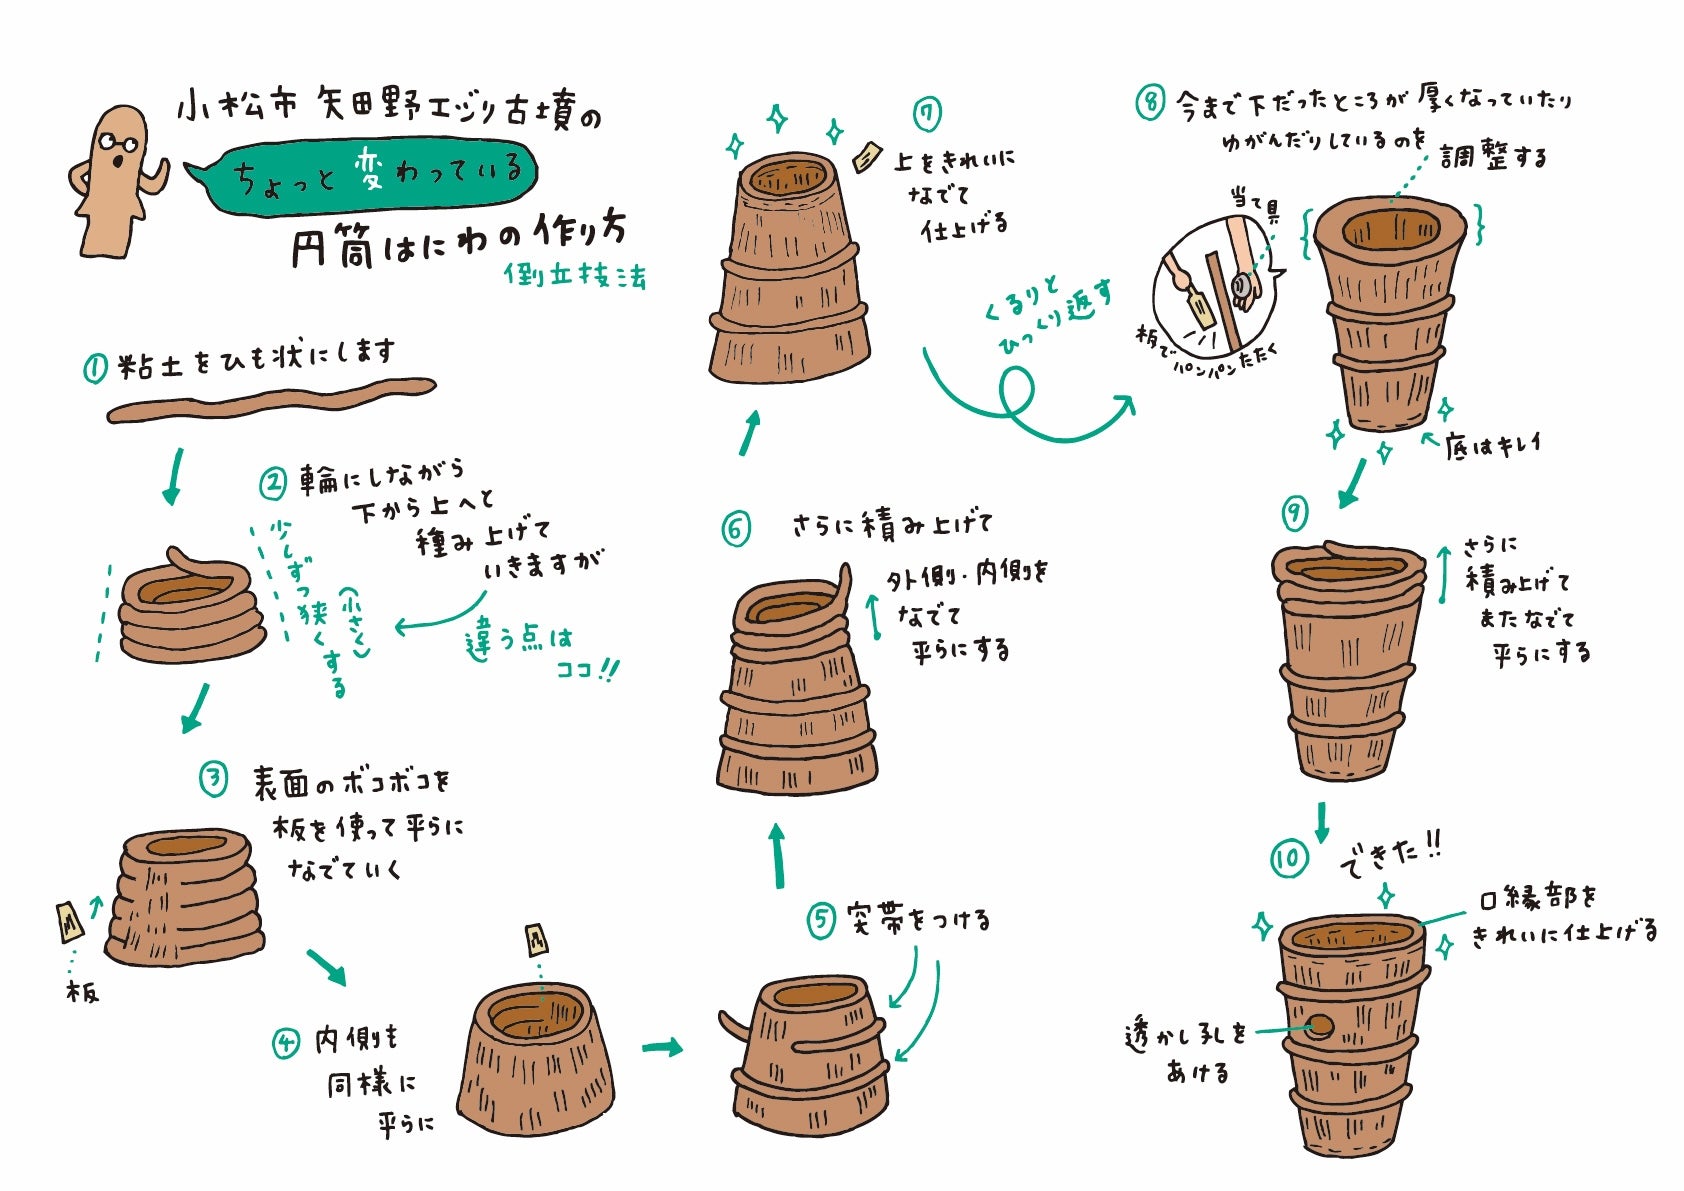 小松市 矢田野エジリ古墳の
ちょっと変わっている
円筒はにわの作り方
倒立技法
① 粘土をひも状にします
② 輪にしながら
下から上へと
種み上げて
いきますが
違う点は
ココ!!
少しずつ狭くする
(小さく)
③ 表面のボコボコを
板を使って平らに
なでていく
板
④ 内側も
同様に
平らに
⑤ 突帯をつける
⑥ さらに積み上げて
外側・内側を
なでて
平らにする
⑦ 上をきれいに
なでて
仕上げる
くるりと
ひっくり返す
⑧ 今まで下だったところが厚くなっていたり
ゆがんだりしているのを
調整する
当て具
板でパンパンたたく
底はキレイ
⑨ さらに
積み上げて
またなでて
平らにする
⑩ できた!!
口縁部を
きれいに仕上げる
透かし孔を
あける